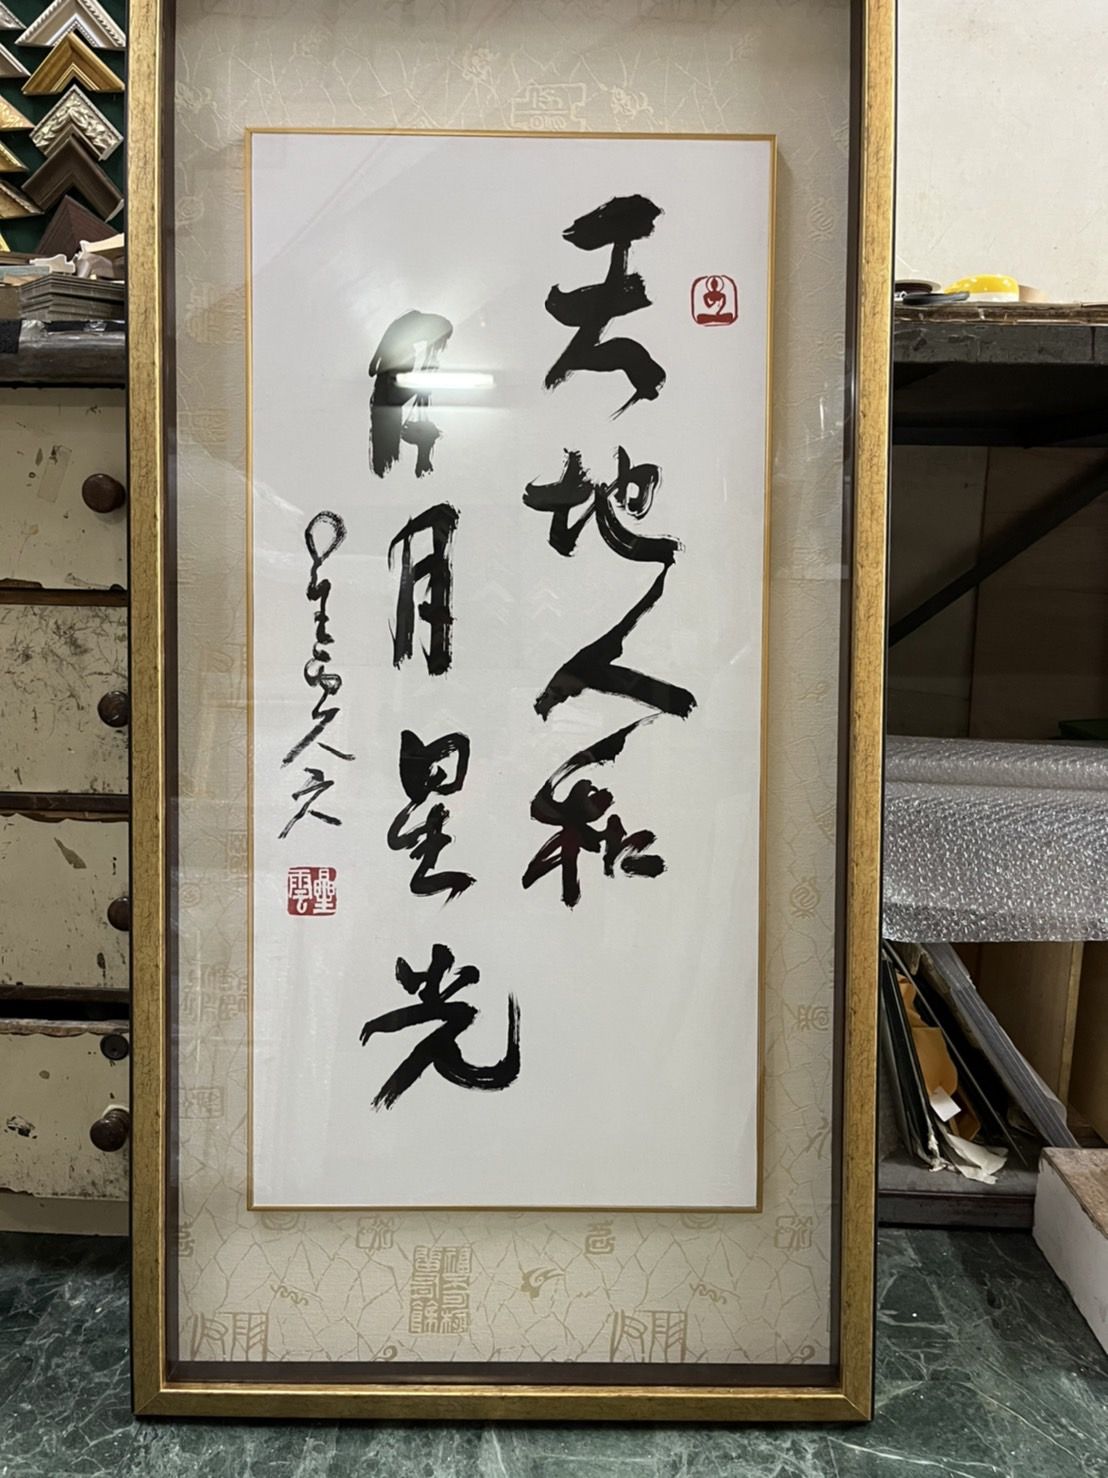 天地人和
日月星光
星雲
星雲